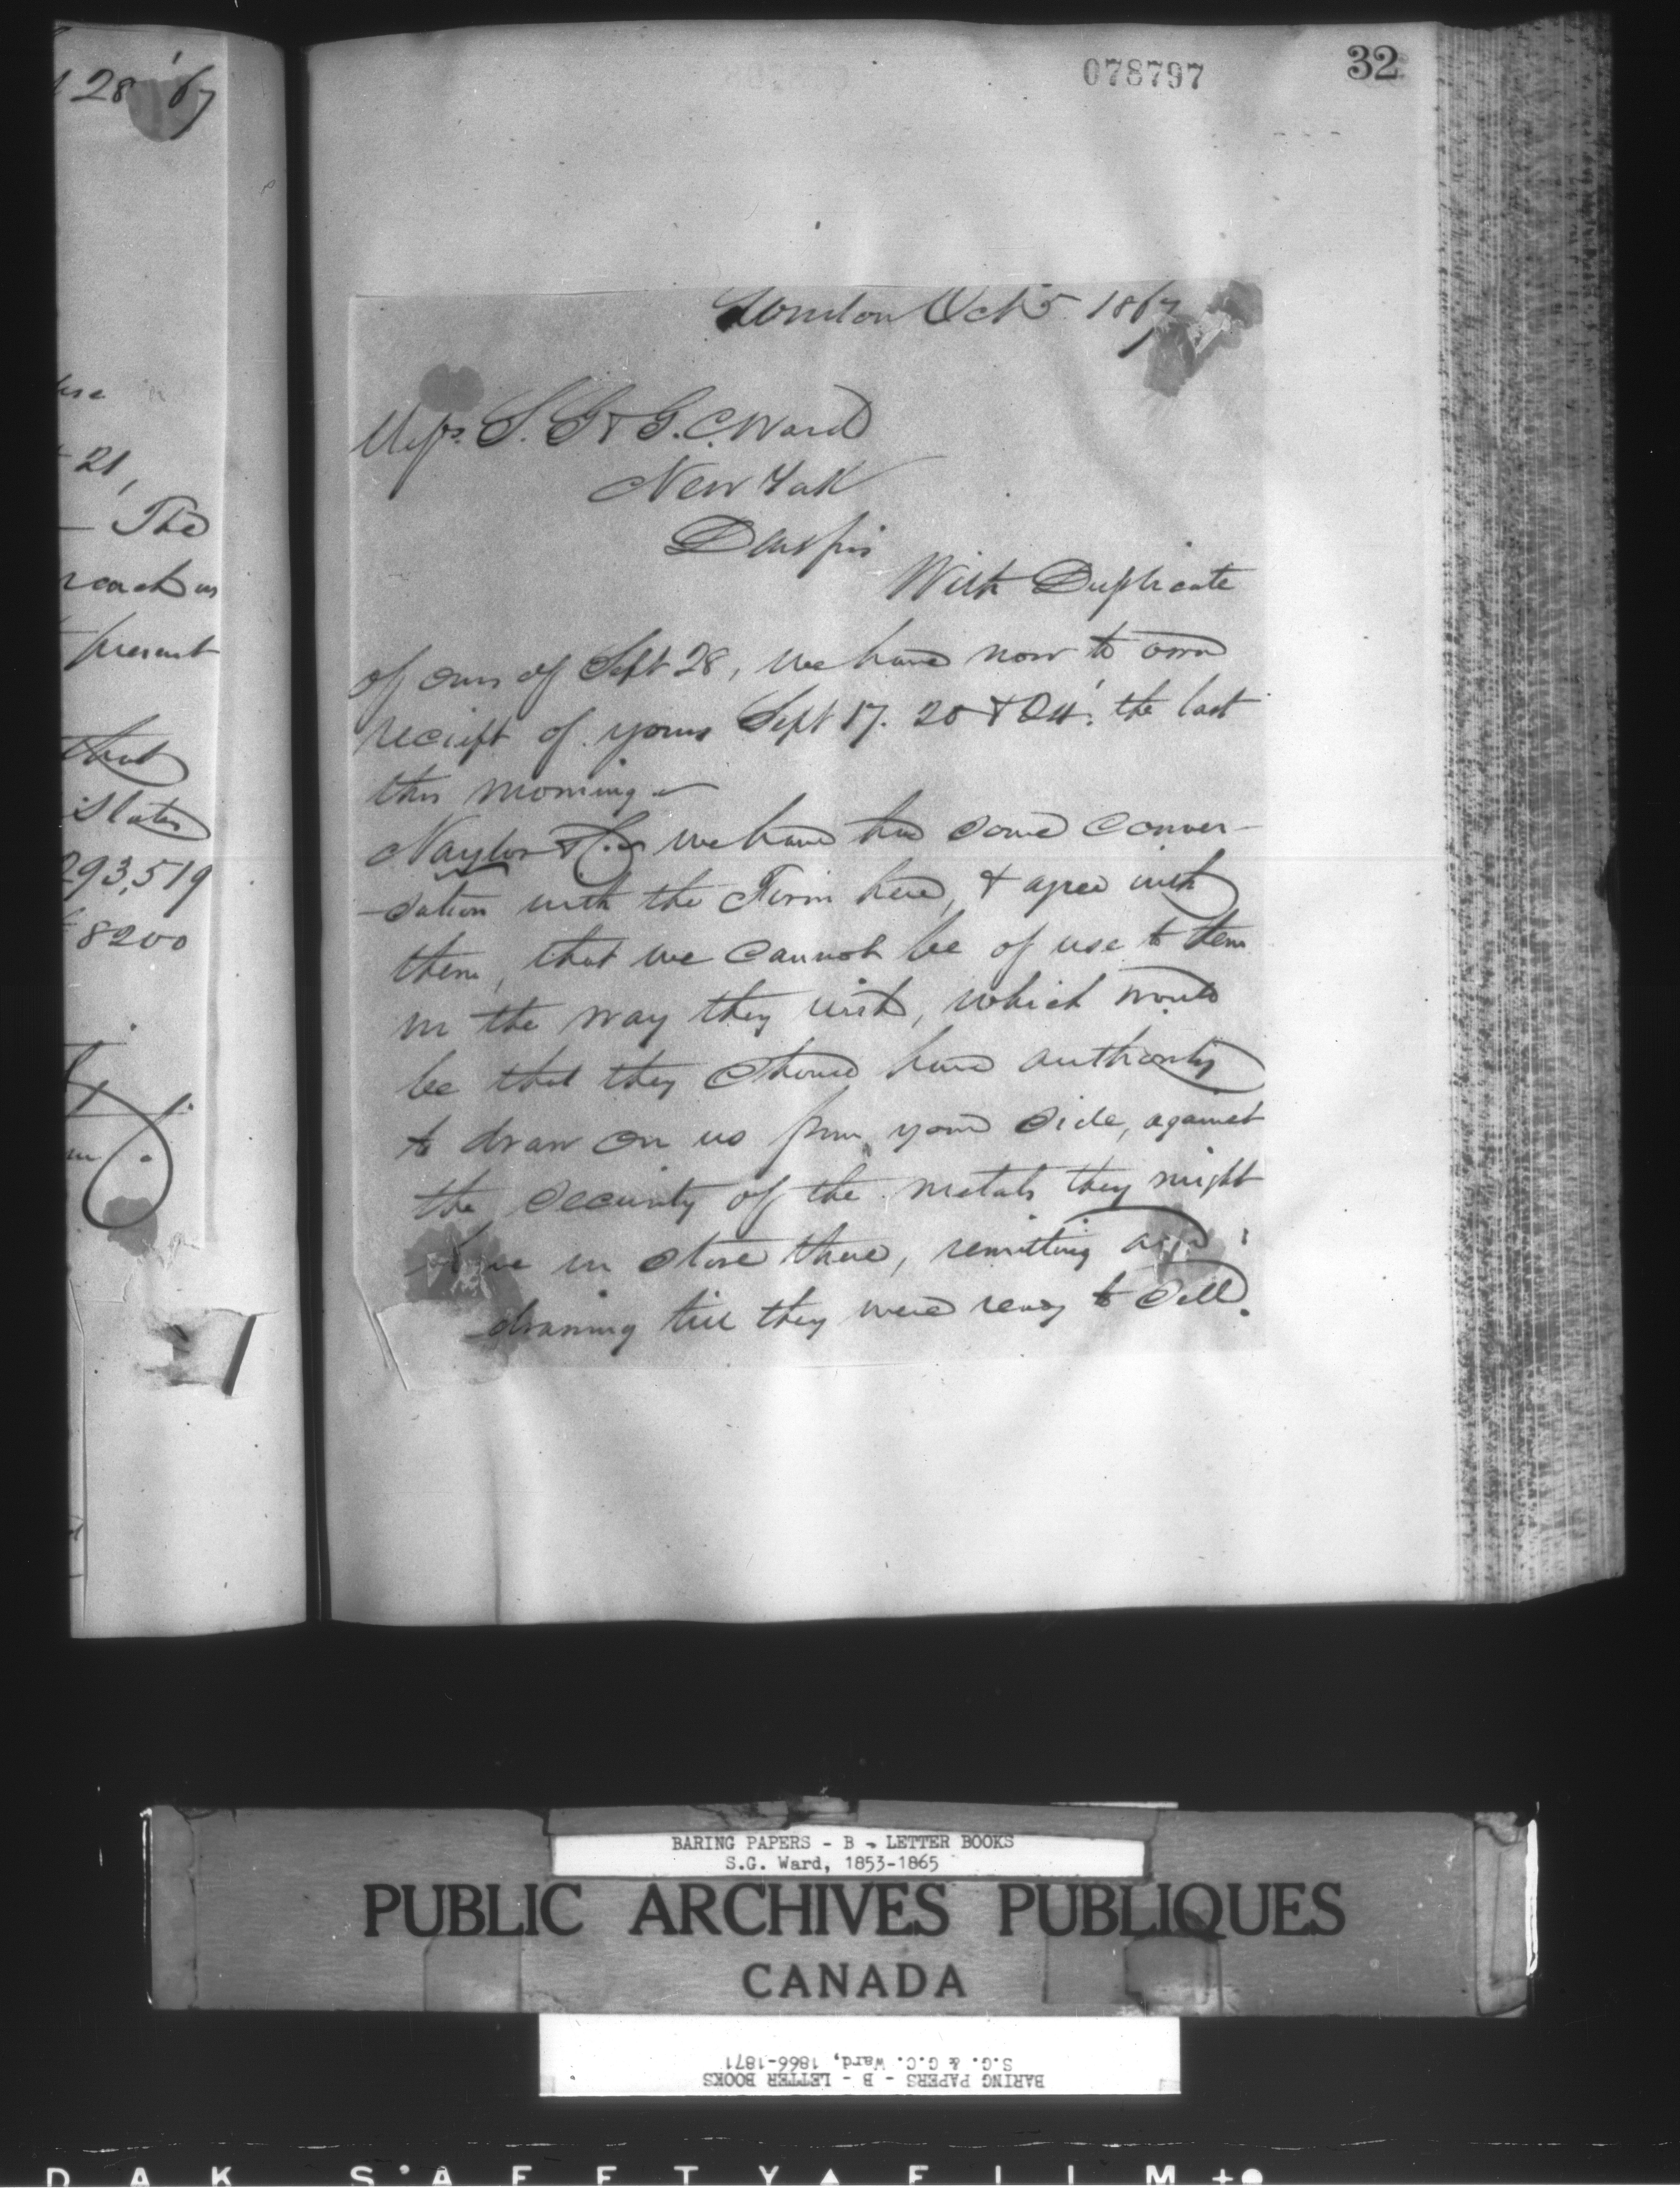 28 '67
21,
— The
reach us
present
that
States
293,519
8200
078797
32
London Oct 5 1867
Messrs. S. G & G. C. Ward
New York
Dear Sirs
With Duplicate
of ours of Sept 28, we have now to own
reciept of yours Sept 17. 20 & 24. the last
this morning —
Naylor & Co we have had some conver-
-sation with the Firm here, & agree with
them, that we cannot be of use to them
in the way they wish, which would
be that they should have authority
to draw on us from your side, against
the security of the metals they might
have in store there, remitting and
drawing till they were ready to sell.
BARING PAPERS - B - LETTER BOOKS
S.G. Ward, 1853-1865
PUBLIC ARCHIVES PUBLIQUES
CANADA
BARING PAPERS - B - LETTER BOOKS
S.G. & G.C. Ward, 1866-1871
DAK SAFETY FILM